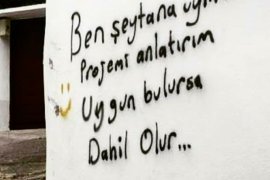 Ben şeytana
Projemi anlatırım
Uygun bulursa
Dahil Olur...